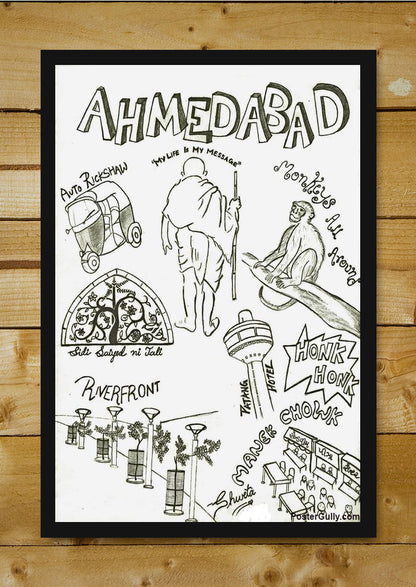 AHMEDABAD
"MY LIFE IS MY MESSAGE"
AUTO RICKSHAW
MONKEYS ALL AROUND
Sidi Saiyed ni Jali
PATANG HOTEL
HONK
HONK
RIVERFRONT
MANEK CHOWK
Shweta
PosterGully.com